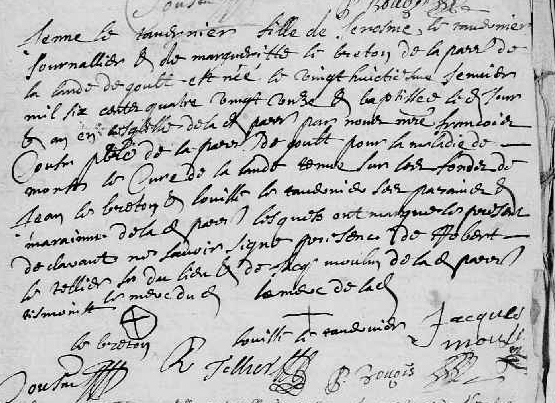 Jenne le tavernier fille de Jerosme le tavernier
Journallier & de margueritte le breton de la parr de
la lande de goult est née le vingt huictiesme Jenvier
mil six cents quatre vingt unze & baptissee le d Jour
& an en lesglisse de la d parr par nous mre francois
Cousin pbre de la parr de goult pour la maladie de
monsr le Curé de la lande tenue sur les fonds de
Jean le breton & louisse le tavernier ses parain &
maraine de la d parr lesquels ont marque les presents
declarant ne savoir signe presence de Robert
le tellier sr du lieu & de Jacq moulin de la d parr
tesmoints le merc du d la merc de la d
le breton louisse le tavernier Jacques
moulin
Cousin R Tellier P. Rougis